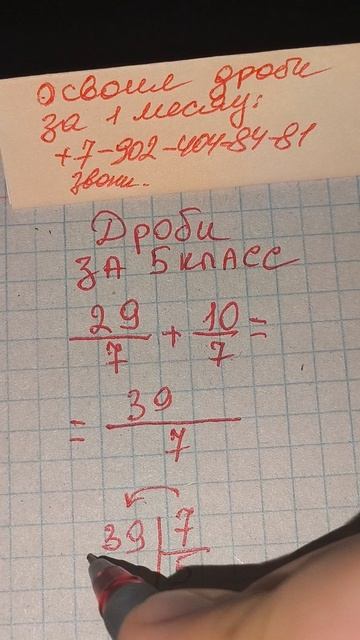 Освоил дроби
за 1 месяц:
+7-902-404-84-81
Звони.
Дроби
ЗА 5 КЛАСС
29/7 + 10/7 =
= 39/7
39 | 7